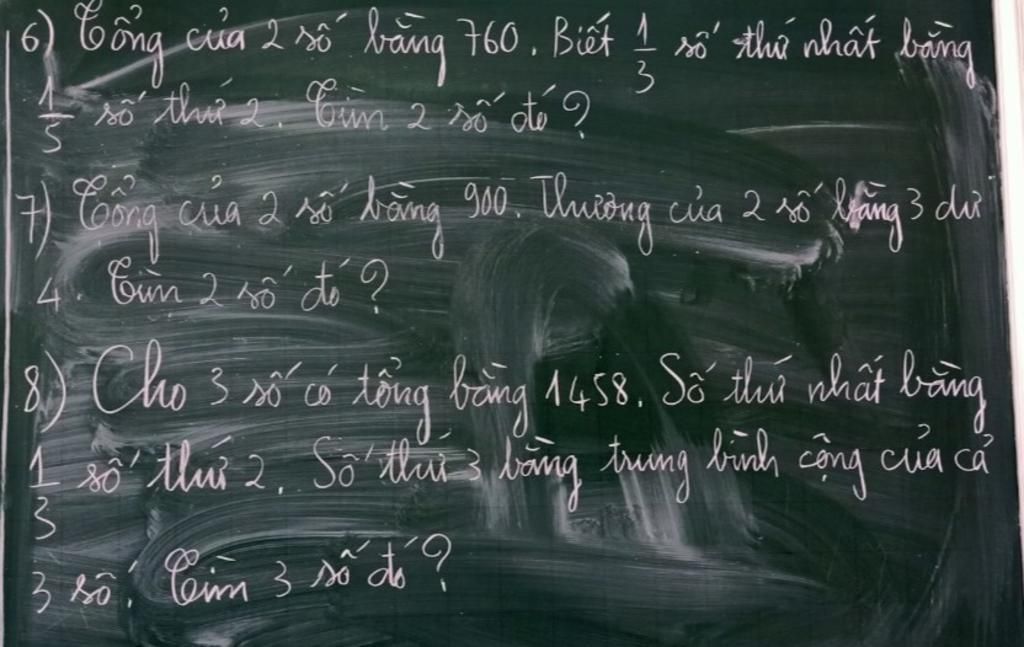 6) Tổng của 2 số bằng 760. Biết 1/3 số thứ nhất bằng
1/5 số thứ 2. Tìm 2 số đó?
7) Tổng của 2 số bằng 900. Thương của 2 số bằng 3 dư
4. Tìm 2 số đó?
8) Cho 3 số có tổng bằng 1458. Số thứ nhất bằng
1/3 số thứ 2. Số thứ 3 bằng trung bình cộng của cả
3 số. Tìm 3 số đó?